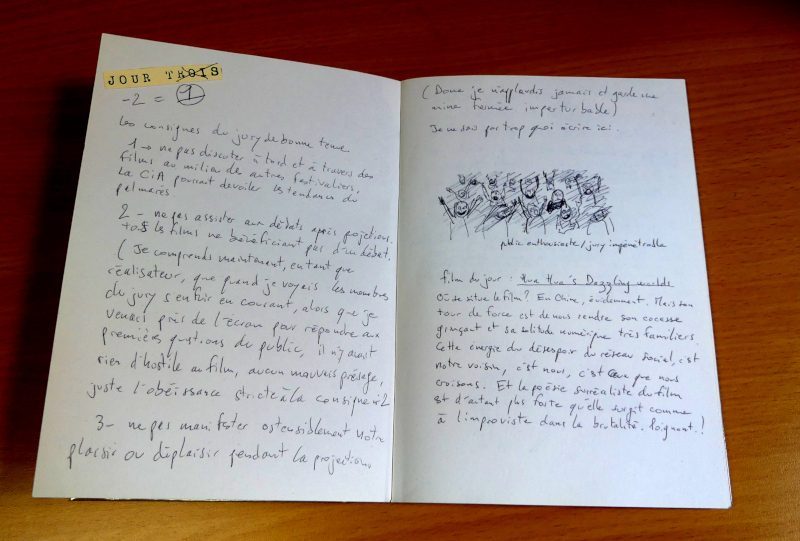 JOUR TROIS
-2 = 1
Les consignes du jury de bonne tenue
1 → ne pas discuter à tort et à travers des
films au milieu de autres festivaliers,
La CIA pourrait dévoiler les tendances du
palmarès
2 - ne pas assister aux débats après projections.
tous les films ne bénéficiant pas d'un débat.
( Je comprends maintenant, en tant que
réalisateur, que quand je voyais les membres
du jury s'enfuir en courant, alors que je
venais près de l'écran pour répondre aux
premières questions du public, il n'y avait
rien d'hostile au film, aucun mauvais présage,
juste l'obéissance stricte à la consigne n°2
3- ne pas manifester ostensiblement votre
plaisir ou déplaisir pendant la projections
( Donc je n'applaudis jamais et garde une
mine fermée imperturbable)
Je ne sais pas trop quoi écrire ici.
public enthousiaste / jury impénétrable
film du jour : Hua Hua's Dazzling worlds
Où se situe le film? En Chine, évidemment. Mais son
tour de force est de nous rendre son cocasse
grinçant et sa solitude numérique très familiers.
Cette énergie du désespoir du réseau social, c'est
notre voisin, c'est nous, c'est ceux que nous
croisons. Et la poésie surréaliste du film
est d'autant plus forte qu'elle surgit comme
à l'improviste dans la brutalité. Poignant.!